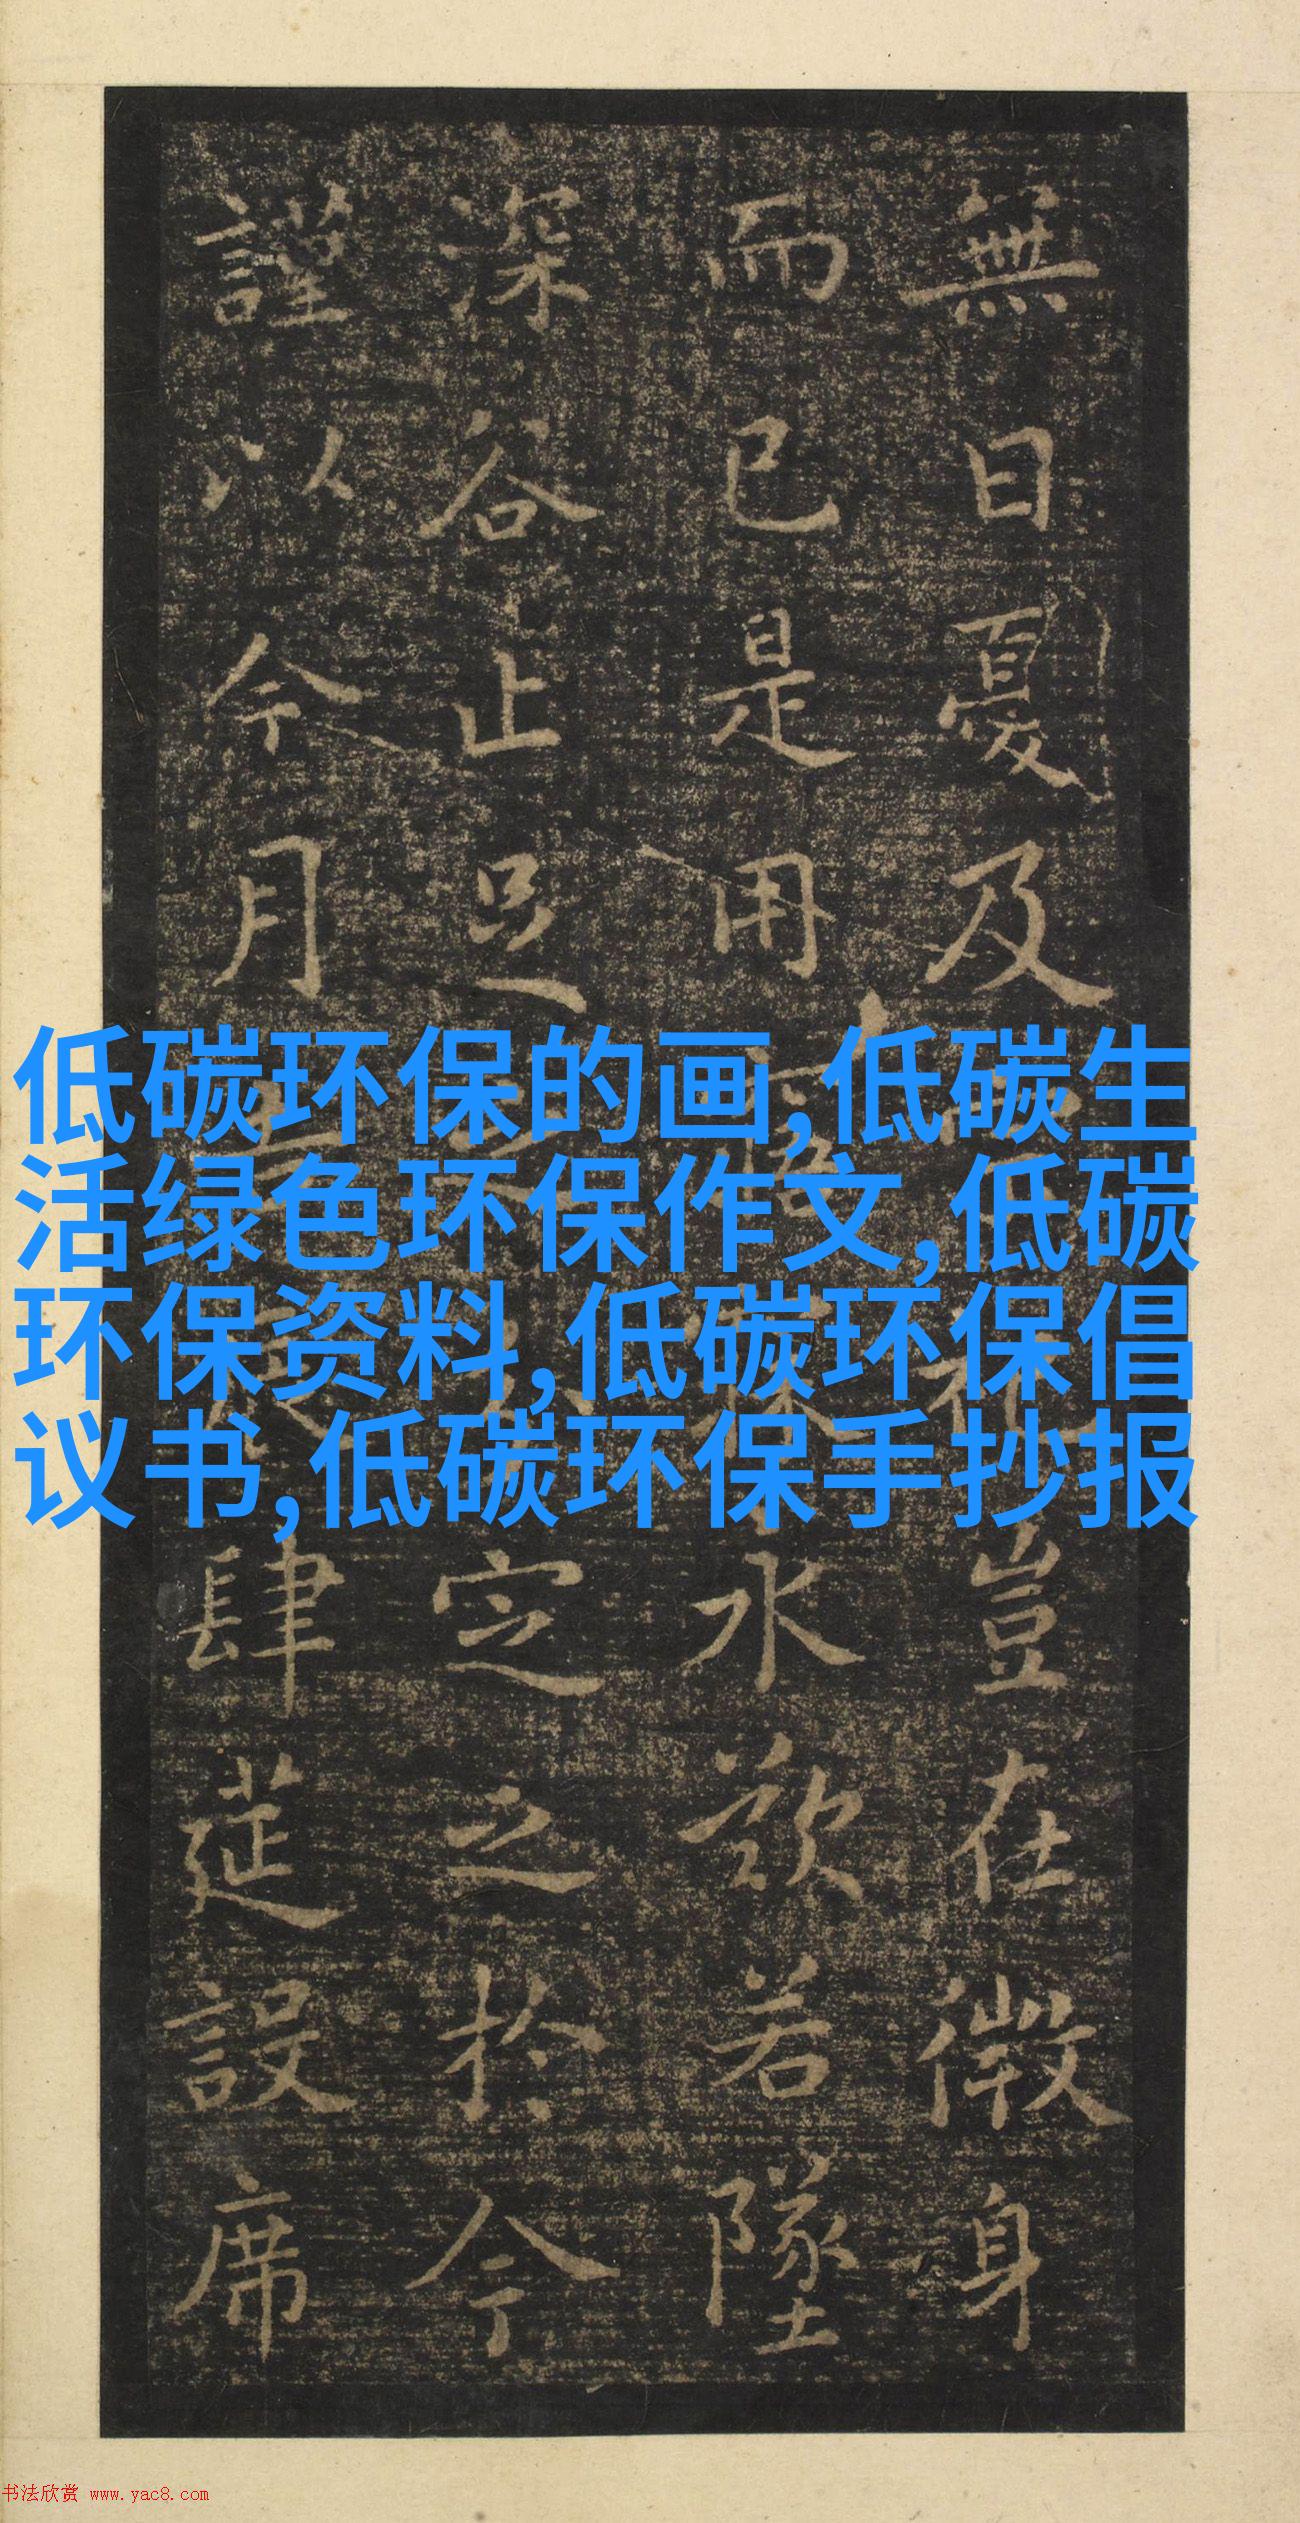 無日憂及豈在微身
而已是用永歎若墜
深谷止足定之於今
謹以今月肆筵設席
低碳环保的画,低碳生
活绿色环保作文,低碳
环保资料,低碳环保倡
议书,低碳环保手抄报
书法欣赏 www.yac8.com